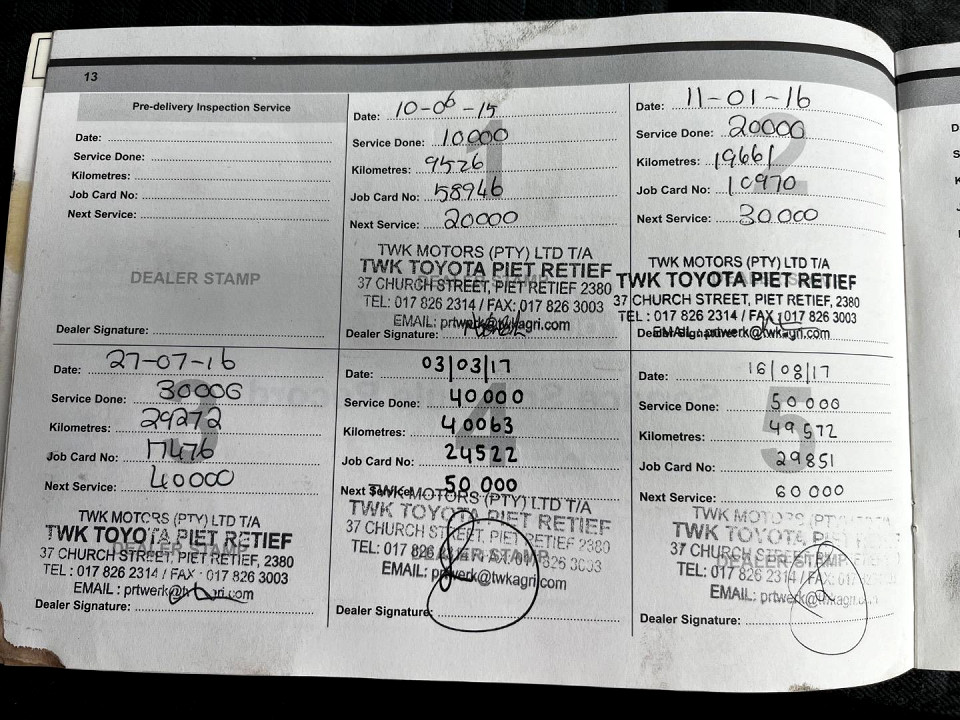 13
Pre-delivery Inspection Service
Date:
Service Done:
Kilometres:
Job Card No:
Next Service:
DEALER STAMP
Dealer Signature:
1
Date: 10-06-15
Service Done: 10000
Kilometres: 9526
Job Card No: 58946
Next Service: 20000
TWK MOTORS (PTY) LTD T/A
TWK TOYOTA PIET RETIEF
37 CHURCH STREET, PIET RETIEF 2380
TEL: 017 826 2314 / FAX: 017 826 3003
EMAIL: prtwerk@twkagri.com
Dealer Signature:
2
Date: 11-01-16
Service Done: 20000
Kilometres: 19661
Job Card No: 10970
Next Service: 30000
TWK MOTORS (PTY) LTD T/A
TWK TOYOTA PIET RETIEF
37 CHURCH STREET, PIET RETIEF, 2380
TEL : 017 826 2314 / FAX : 017 826 3003
EMAIL: prtwerk@twkagri.com
Dealer Signature:
3
Date: 27-07-16
Service Done: 30000
Kilometres: 29272
Job Card No: 17476
Next Service: 40000
TWK MOTORS (PTY) LTD T/A
TWK TOYOTA PIET RETIEF
DEALER STAMP
37 CHURCH STREET, PIET RETIEF, 2380
TEL : 017 826 2314 / FAX : 017 826 3003
EMAIL : prtwerk@twkagri.com
Dealer Signature:
4
Date: 03/03/17
Service Done: 40000
Kilometres: 40063
Job Card No: 24522
Next Service: 50 000
TWK MOTORS (PTY) LTD T/A
TWK TOYOTA PIET RETIEF
37 CHURCH STREET, PIET RETIEF 2380
DEALER STAMP
TEL: 017 826 2314 / FAX: 017 826 3003
EMAIL: prtwerk@twkagri.com
Dealer Signature:
5
Date: 16/08/17
Service Done: 50 000
Kilometres: 49572
Job Card No: 29851
Next Service: 60 000
TWK MOTORS (PTY)
TWK TOYOTA PIET RETIEF
37 CHURCH STREET, PIET
DEALER STAMP
TEL: 017 826 2314 / FAX: 017 826
EMAIL: prtwerk@twkagri.com
Dealer Signature: